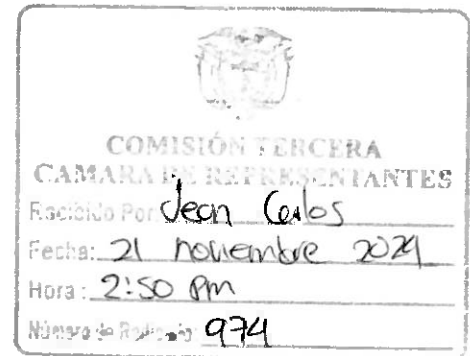 COMISIÓN TERCERA
CAMARA DE REPRESENTANTES
Recibido Por: Jean Carlos
Fecha: 21 noviembre 2024
Hora: 2:50 pm
Número de Radicado: 974